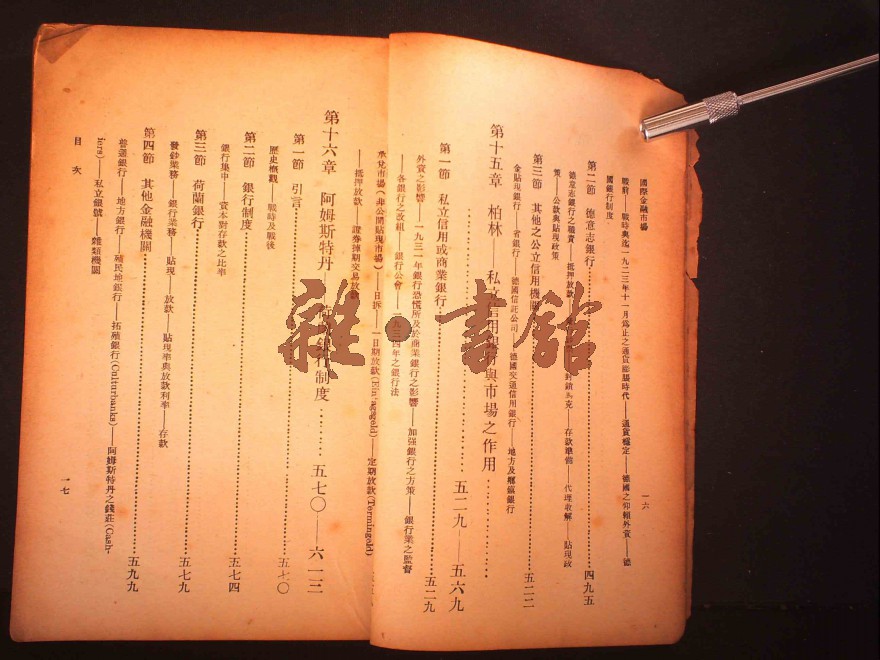 國際金融市場
一六
戰前——戰時與迄一九二三年十一月為止之通貨膨脹時代——通貨穩定——德國之仰賴外資——德
國銀行制度
第二節 德意志銀行 四九五
德意志銀行之職責——抵押放款 封鎖馬克——存款準備——代理收解——貼現政
策——公款與貼現政策
第三節 其他之公立信用機關 五二二
金貼現銀行——省銀行——德國信託公司——德國交通信用銀行——地方及鄉鎮銀行
第十五章 柏林——私立信用機關與市場之作用 五二九——五六九
第一節 私立信用或商業銀行 五二九
外資之影響——一九三一年銀行恐慌所及於商業銀行之影響——加強銀行之方策——銀行業之監督
——各銀行之改組——銀行公會——一九三四年之銀行法
承兌市場(非公開貼現市場)——日拆——一日期放款(Eintagsgeld)——定期放款(Termingeld)
——抵押放款——證券掉期交易放款
第十六章 阿姆斯特丹 銀行制度 五七〇——六一三
第一節 引言 五七〇
歷史概觀——戰時及戰後
第二節 銀行制度 五七四
銀行集中——資本對存款之比率
第三節 荷蘭銀行 五七九
發鈔業務——銀行業務——貼現——放款——貼現率與放款利率——存款
第四節 其他金融機關 五九九
普通銀行——地方銀行——殖民地銀行——拓殖銀行(Culturbanks)——阿姆斯特丹之錢莊(Cash-
iers)——私立銀號——雜類機關
目次
一七
雜·書館